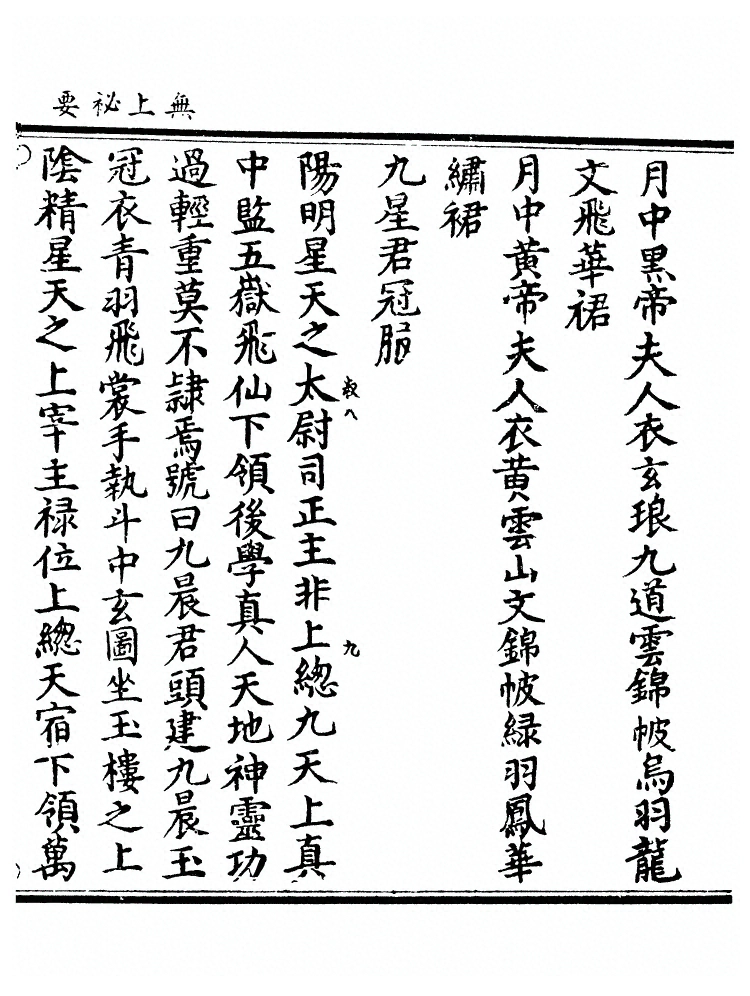 無上祕要
月中黑帝夫人衣玄琅九道雲錦帔烏羽龍
文飛華裙
月中黃帝夫人衣黃雲山文錦帔緑羽鳳華
繡裙
九星君冠服
陽明星天之太尉司正主非上緫九天上真
中監五嶽飛仙下領後學真人天地神靈功
過輕重莫不隷焉號曰九晨君頭建九晨玉
冠衣青羽飛裳手執斗中玄圖坐玉樓之上
陰精星天之上宰主禄位上緫天宿下領萬
叔八
九